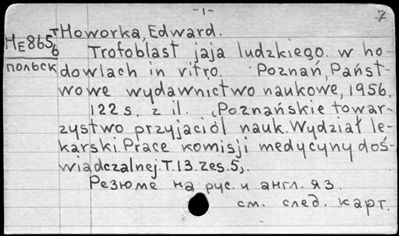 -1-
7
HE865
6
ПОЛЬСК
THoworka, Edward.
Trofoblast jaja ludzkiego w ho-
dowlach in vitro. Poznań, Państ-
wowe wydawnictwo naukowe, 1956.
122 s. z il. (Poznańskie towar-
zystwo przyjaciół nauk. Wydział le-
karski. Prace komisji medycyny doś-
wiadczalnej. T.13. zes.5).
Резюме на рус. и англ. яз.
см. след. карт.